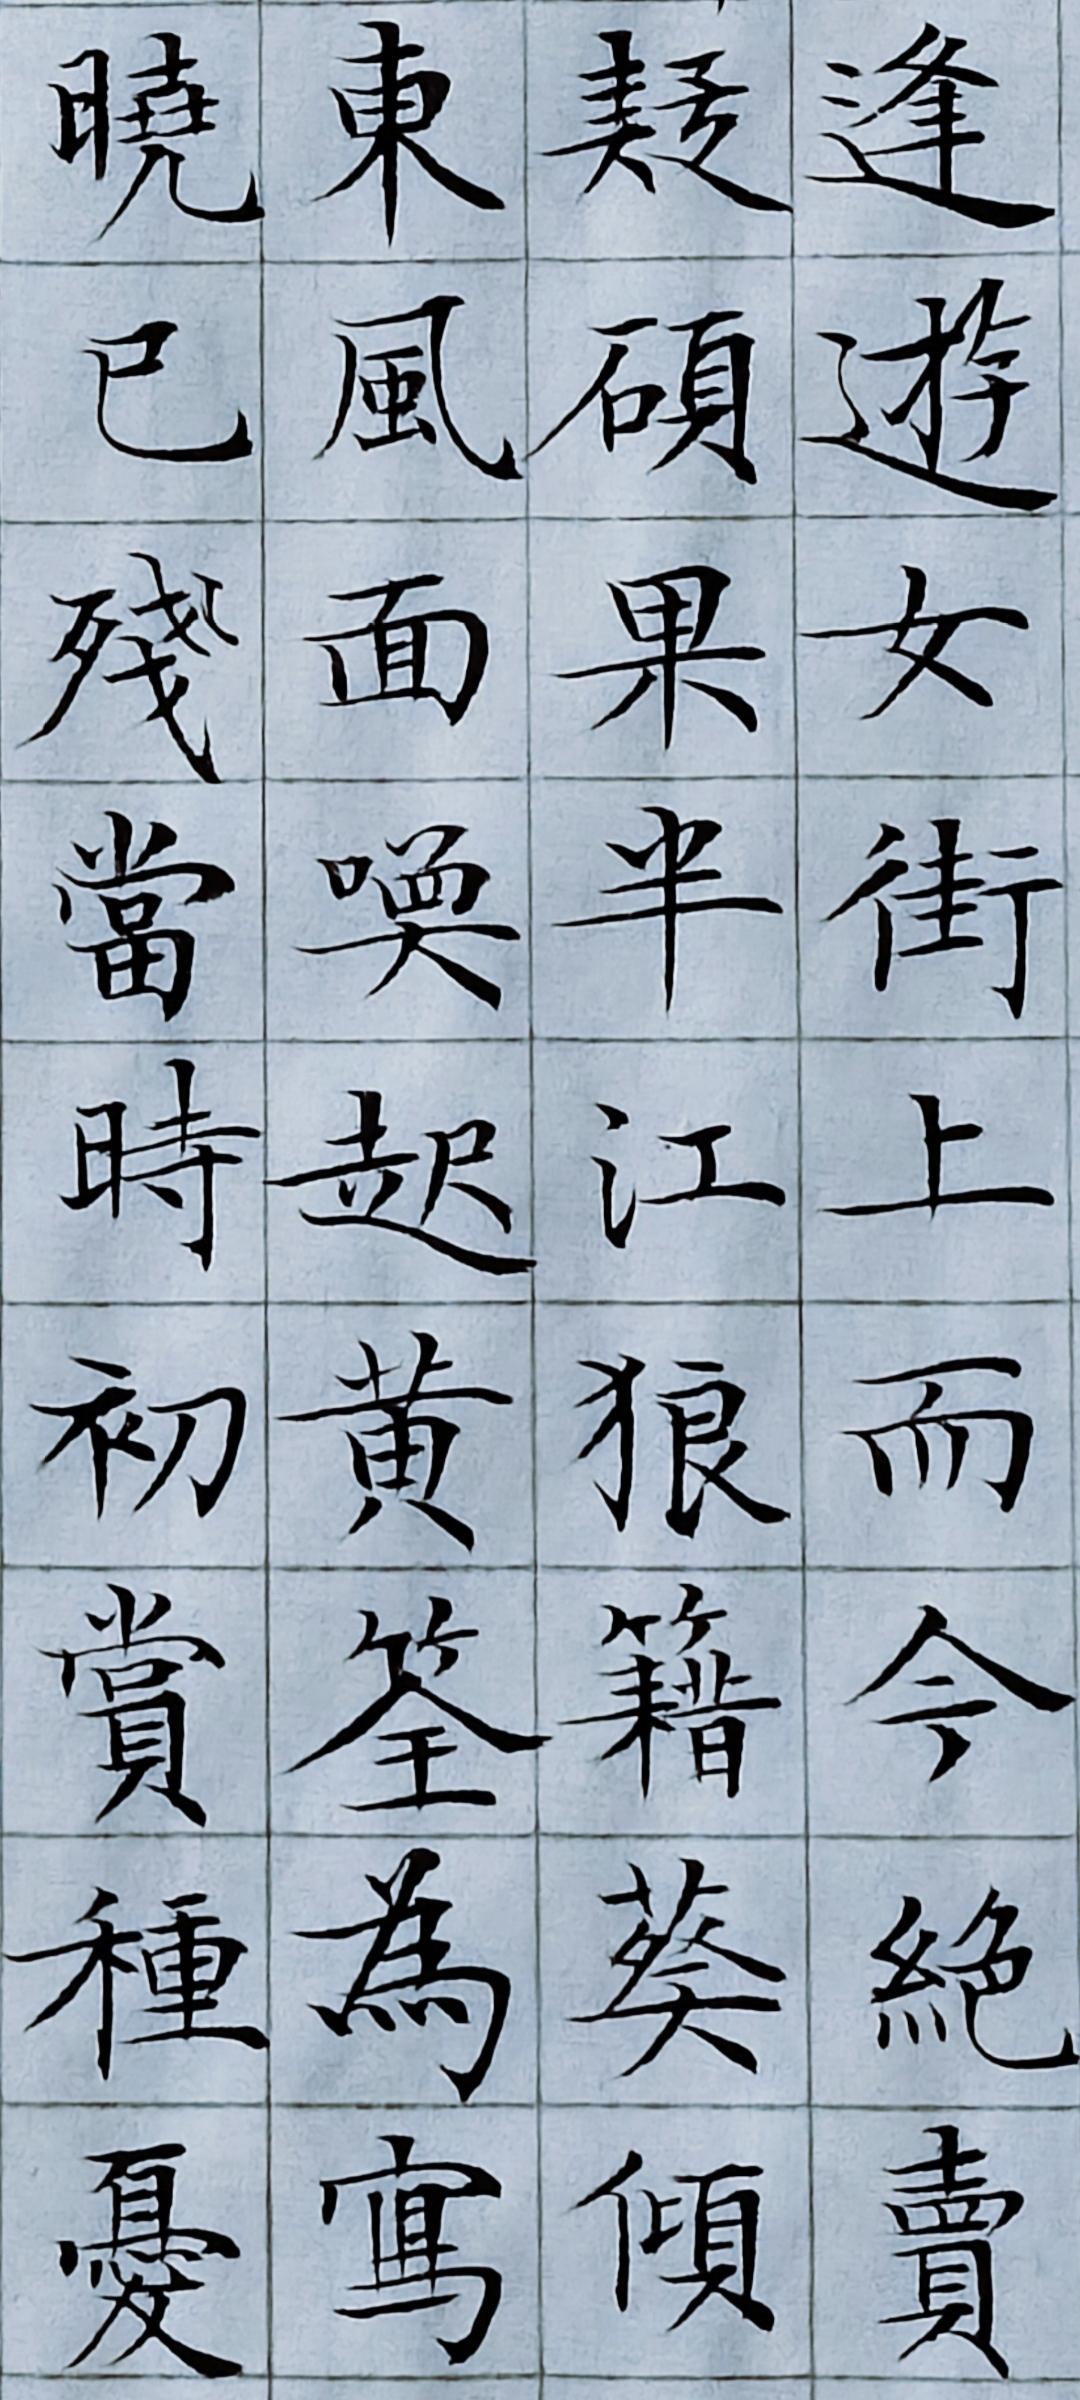 逢遊女街上而今絕賣
疑碩果半江狼籍葵傾
東風面喚起黄筌為寫
曉已殘當時初賞種憂